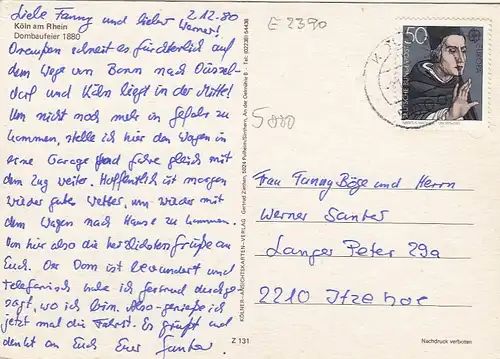 Köln am Rhein
Dombaufeier 1880
2.12.80
Liebe Fanny und lieber Werner!
Draußen schneit es fürchterlich auf
dem Wege von Bonn nach Düssel-
dorf und Köln liegt in der Mitte!
Um nicht noch mehr in Gefahr zu
kommen, stelle ich hier den Wagen in
eine Garage und fahre gleich mit
dem Zug weiter. Hoffentlich ist morgen
wieder gutes Wetter, um wieder mit
dem Wagen nach Hause zu kommen.
Von hier also die herzlichsten Grüße an
Euch. Der Dom ist bewundert und
telefonisch habe ich gesund durchge-
sagt, wo ich bin. Also genieße ich
jetzt mal die Fahrt. Es grüßt und
denkt an Euch Euer Gunter
KÖLNER-ANSICHTSKARTEN-VERLAG Gertrud Ziethen, 5024 Pulheim/Sinthern, An der Oelmühle 8 Tel: (02238) 54438
Z 131
E 2390
5880
50
DEUTSCHE BUNDESPOST
EUROPA
Frau Fanny Böge und Herrn
Werner Santer
Langer Peter 29a
2210 Itzehoe
Nachdruck verboten